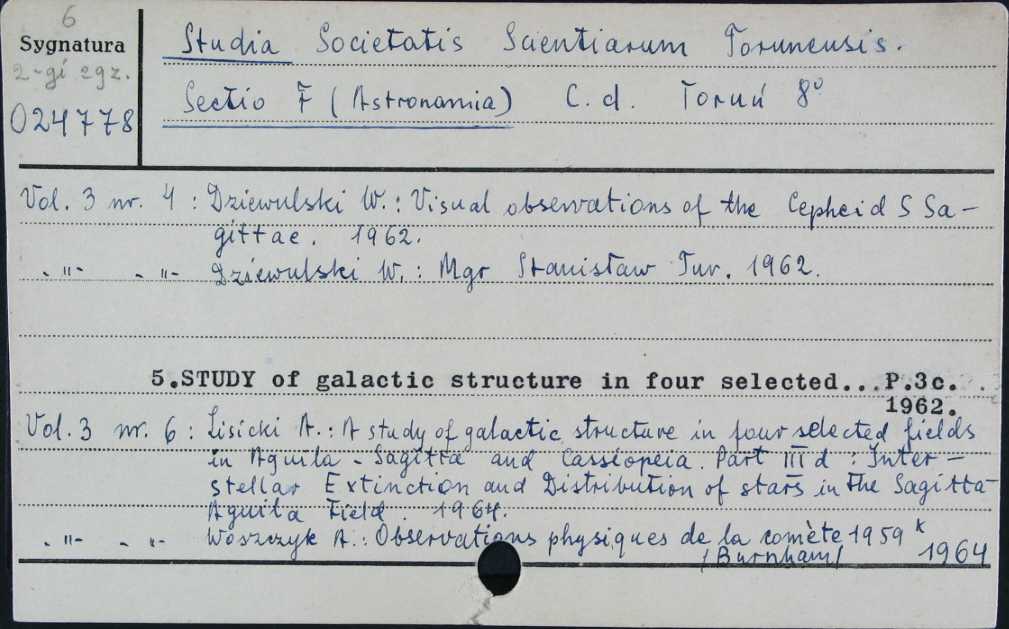 6
Sygnatura
2-gi egz.
024778
Studia Societatis Scientiarum Torunensis.
Sectio F (Astronomia) C.d. Toruń 8°
Vol. 3 nr. 4 : Dziewulski W. : Visual observations of the Cepheid S Sa-
gittae. 1962.
- " - - " - Dziewulski W. : Mgr Stanisław Tur. 1962.
5.STUDY of galactic structure in four selected...P.3c.
1962.
Vol. 3 nr. 6 : Lisicki A. : A study of galactic structure in four selected fields
in Aquila - Sagitta and Cassiopeia. Part III d : Inter-
stellar Extinction and Distribution of stars in the Sagitta-
Aquila Field. 1964.
- " - - " - Woszczyk A. : Observations physiques de la comète 1959 k
/Burnham/ 1964